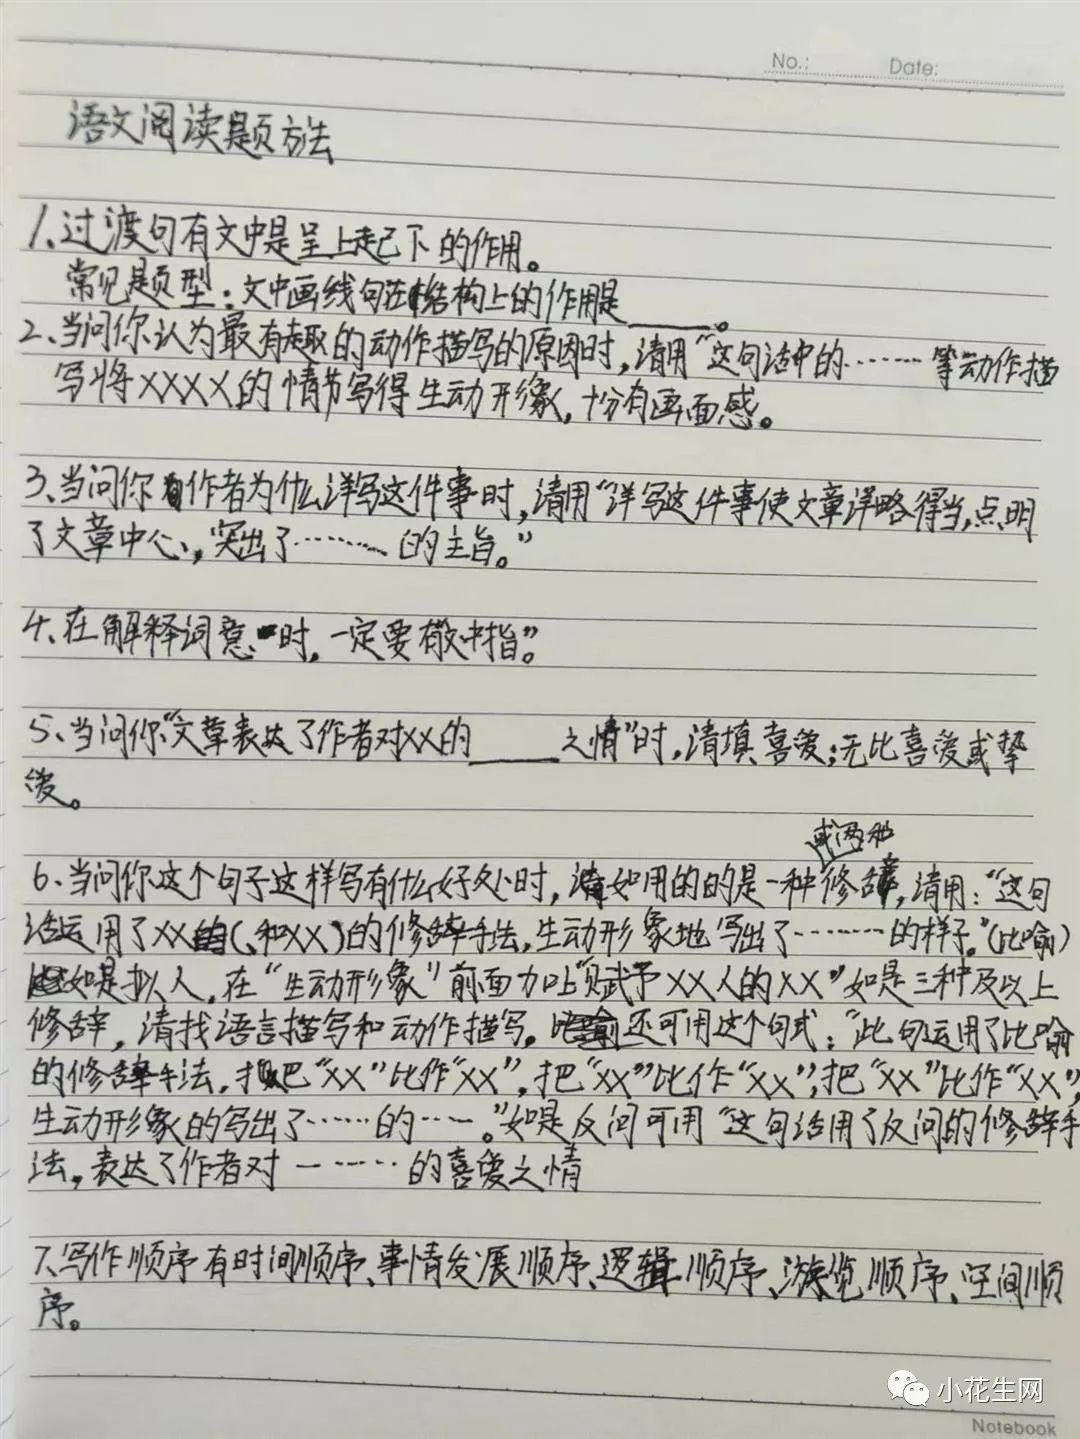 No.: Date:
语文阅读题方法
1、过渡句有文中是呈上起下的作用。
常见题型：文中画线句在结构上的作用是____。
2、当问你认为最有趣的动作描写的原因时，请用“这句话中的……等动作描
写将XXXX的情节写得生动形象，十分有画面感。
3、当问你作者为什么详写这件事时，请用“详写这件事使文章详略得当，点明
了文章中心，突出了………的主旨。”
4、在解释词意时，一定要敬“中指”。
5、当问你“文章表达了作者对XX的____之情”时，请填喜爱；无比喜爱或挚
爱。
或两种
6、当问你这个句子这样写有什么好处时，如用的的是一种修辞，请用：“这句
话运用了XX（、和XX）的修辞手法，生动形象地写出了………的样子。”（比喻）
如是拟人，在“生动形象”前面加上“赋予XX人的XX”如是三种及以上
修辞，请找语言描写和动作描写。比喻还可用这个句式：“此句运用了比喻
的修辞手法，把“XX”比作“XX”，把“XX”比作“XX”；把“XX”比作“XX”，
生动形象的写出了……的……。”如是反问可用“这句话用了反问的修辞手
法，表达了作者对………的喜爱之情
7、写作顺序有时间顺序、事情发展顺序、逻辑顺序、游览顺序、空间顺
序。
小花生网
Notebook